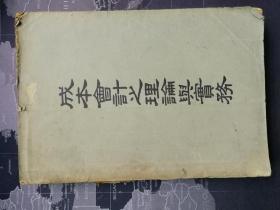 成本會計之理論與實務